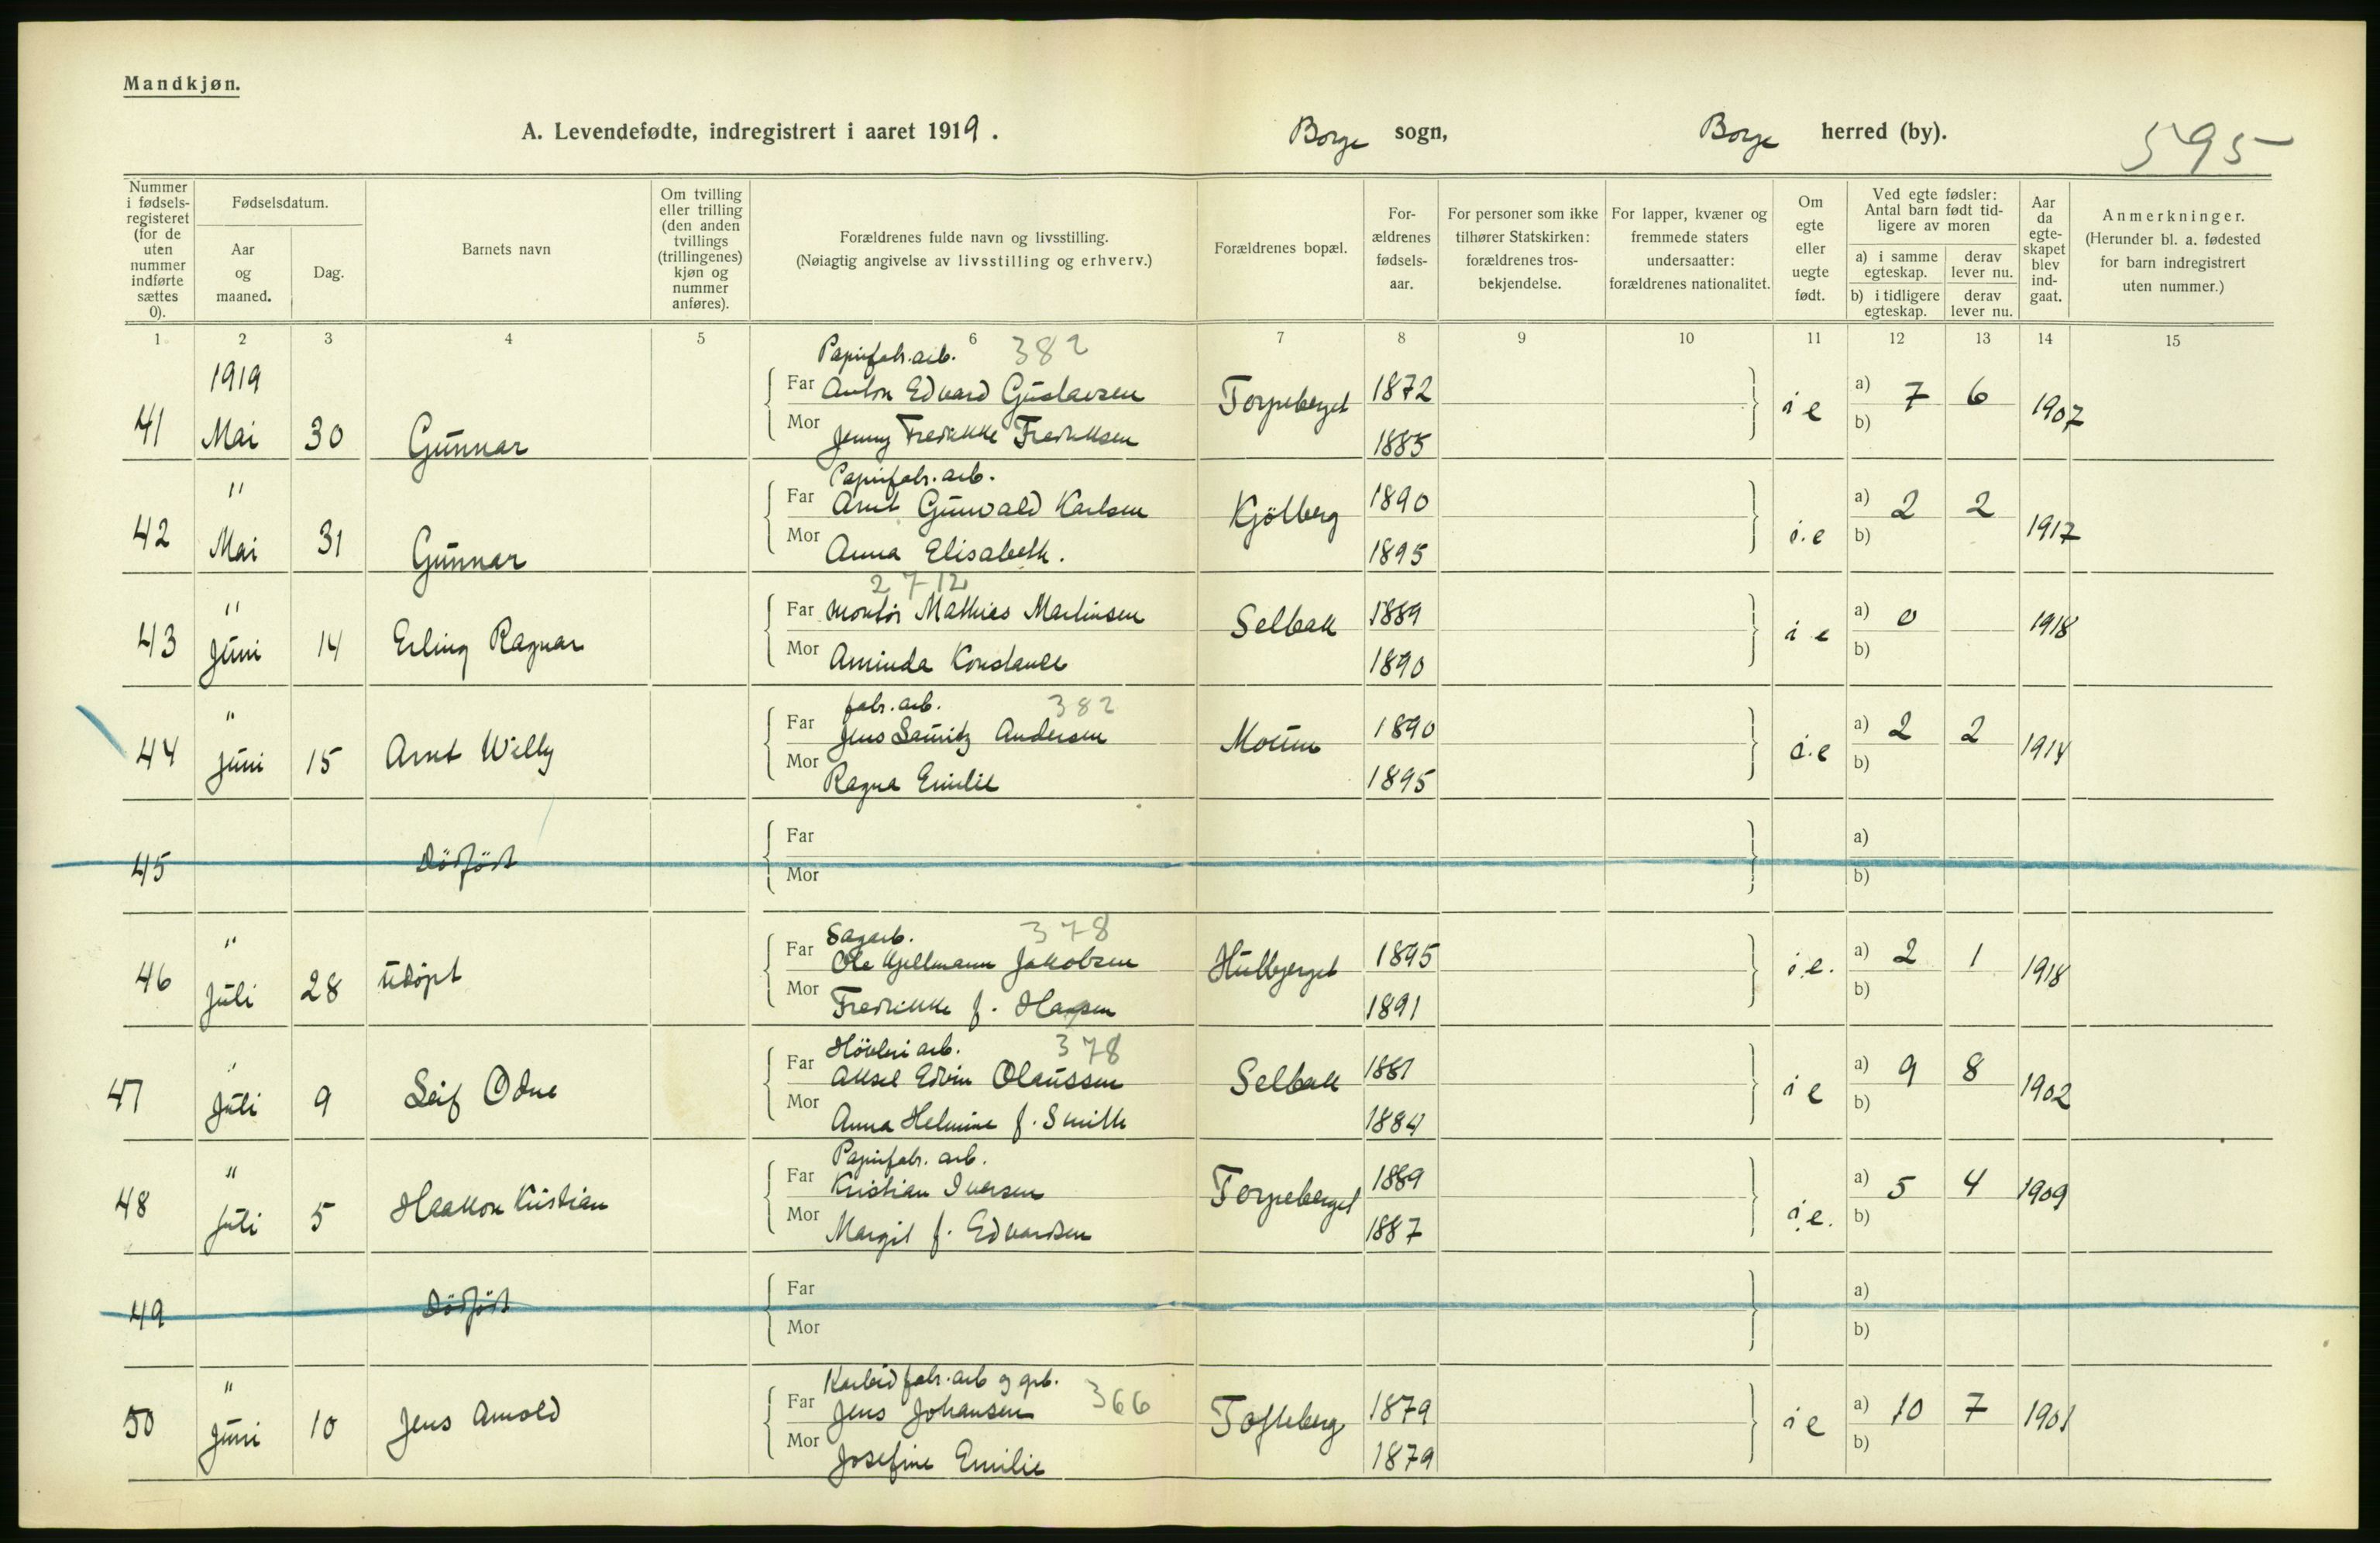 Mandkjøn.
A. Levendefødte, indregistrert i aaret 1919. Borge sogn, Borge herred (by). 595
Nummer i fødsels-registeret (for de uten nummer indførte sættes 0).
Fødselsdatum.
Aar og maaned.
Dag.
Barnets navn
Om tvilling eller trilling (den anden tvillings (trillingenes) kjøn og nummer anføres).
Forældrenes fulde navn og livsstilling.
(Nøiagtig angivelse av livsstilling og erhverv.)
Forældrenes bopæl.
For-ældrenes fødsels-aar.
For personer som ikke tilhører Statskirken: forældrenes tros-bekjendelse.
For lapper, kvæner og fremmede staters undersaatter: forældrenes nationalitet.
Om egte eller uegte født.
Ved egte fødsler: Antal barn født tid-ligere av moren
a) i samme egteskap. derav lever nu.
b) i tidligere egteskap. derav lever nu.
Aar da egte-skapet blev ind-gaat.
Anmerkninger.
(Herunder bl. a. fødested for barn indregistrert uten nummer.)
1 2 3 4 5 6 7 8 9 10 11 12 13 14 15
1919 Papirfabr.arb. 382
Far Anton Edvard Gustavsen Torpeberget 1872 a) 7 6
41 Mai 30 Gunnar Mor Jenny Fredrikke Fredriksen 1885 i e b) 1907
" Papirfabr.arb.
Far Arnt Gunvald Karlsen Kjölberg 1890 a) 2 2
42 Mai 31 Gunnar Mor Anna Elisabeth. 1895 i.e b) 1917
2712
" Far montør Mathies Martinsen Selbak 1889 a) 0 1918
43 Juni 14 Erling Ragnar Mor Aminda Konstance 1890 i e b)
" fabr.arb. 382
Far Jens Lauritz Andersen Moum 1890 a) 2 2
44 Juni 15 Arnt Willy Mor Ragna Emilie 1895 i.e b) 1914
Far a)
45 Dödfödt Mor b)
" Sagarb. 378
Far Ole Kjellmann Jakobsen 1895 a) 2 1
46 Juli 28 udöpt Mor Fredrikke f. Hansen 1891 i.e. b) 1918
" Høvleriarb. 378
Far Aksel Edvin Olaussen Selbak 1881 a) 9 8
47 Juli 9 Leif Odne Mor Anna Helmine f. Smith 1884 i e b) 1902
" Papirfabr. arb.
Far Kristian Iversen Torpeberget 1889 a) 5 4 1909
48 Juli 5 Haakon Kristian Mor Margit f. Edvardsen 1887 i.e. b)
Far a)
49 Dödfödt Mor b)
" Karbidfabr.arb og grb. 366
Far Jens Johansen Tofteberg 1879 a) 10 7 1901
50 Juni 10 Jens Arnold Mor Josefine Emilie 1879 i e b)